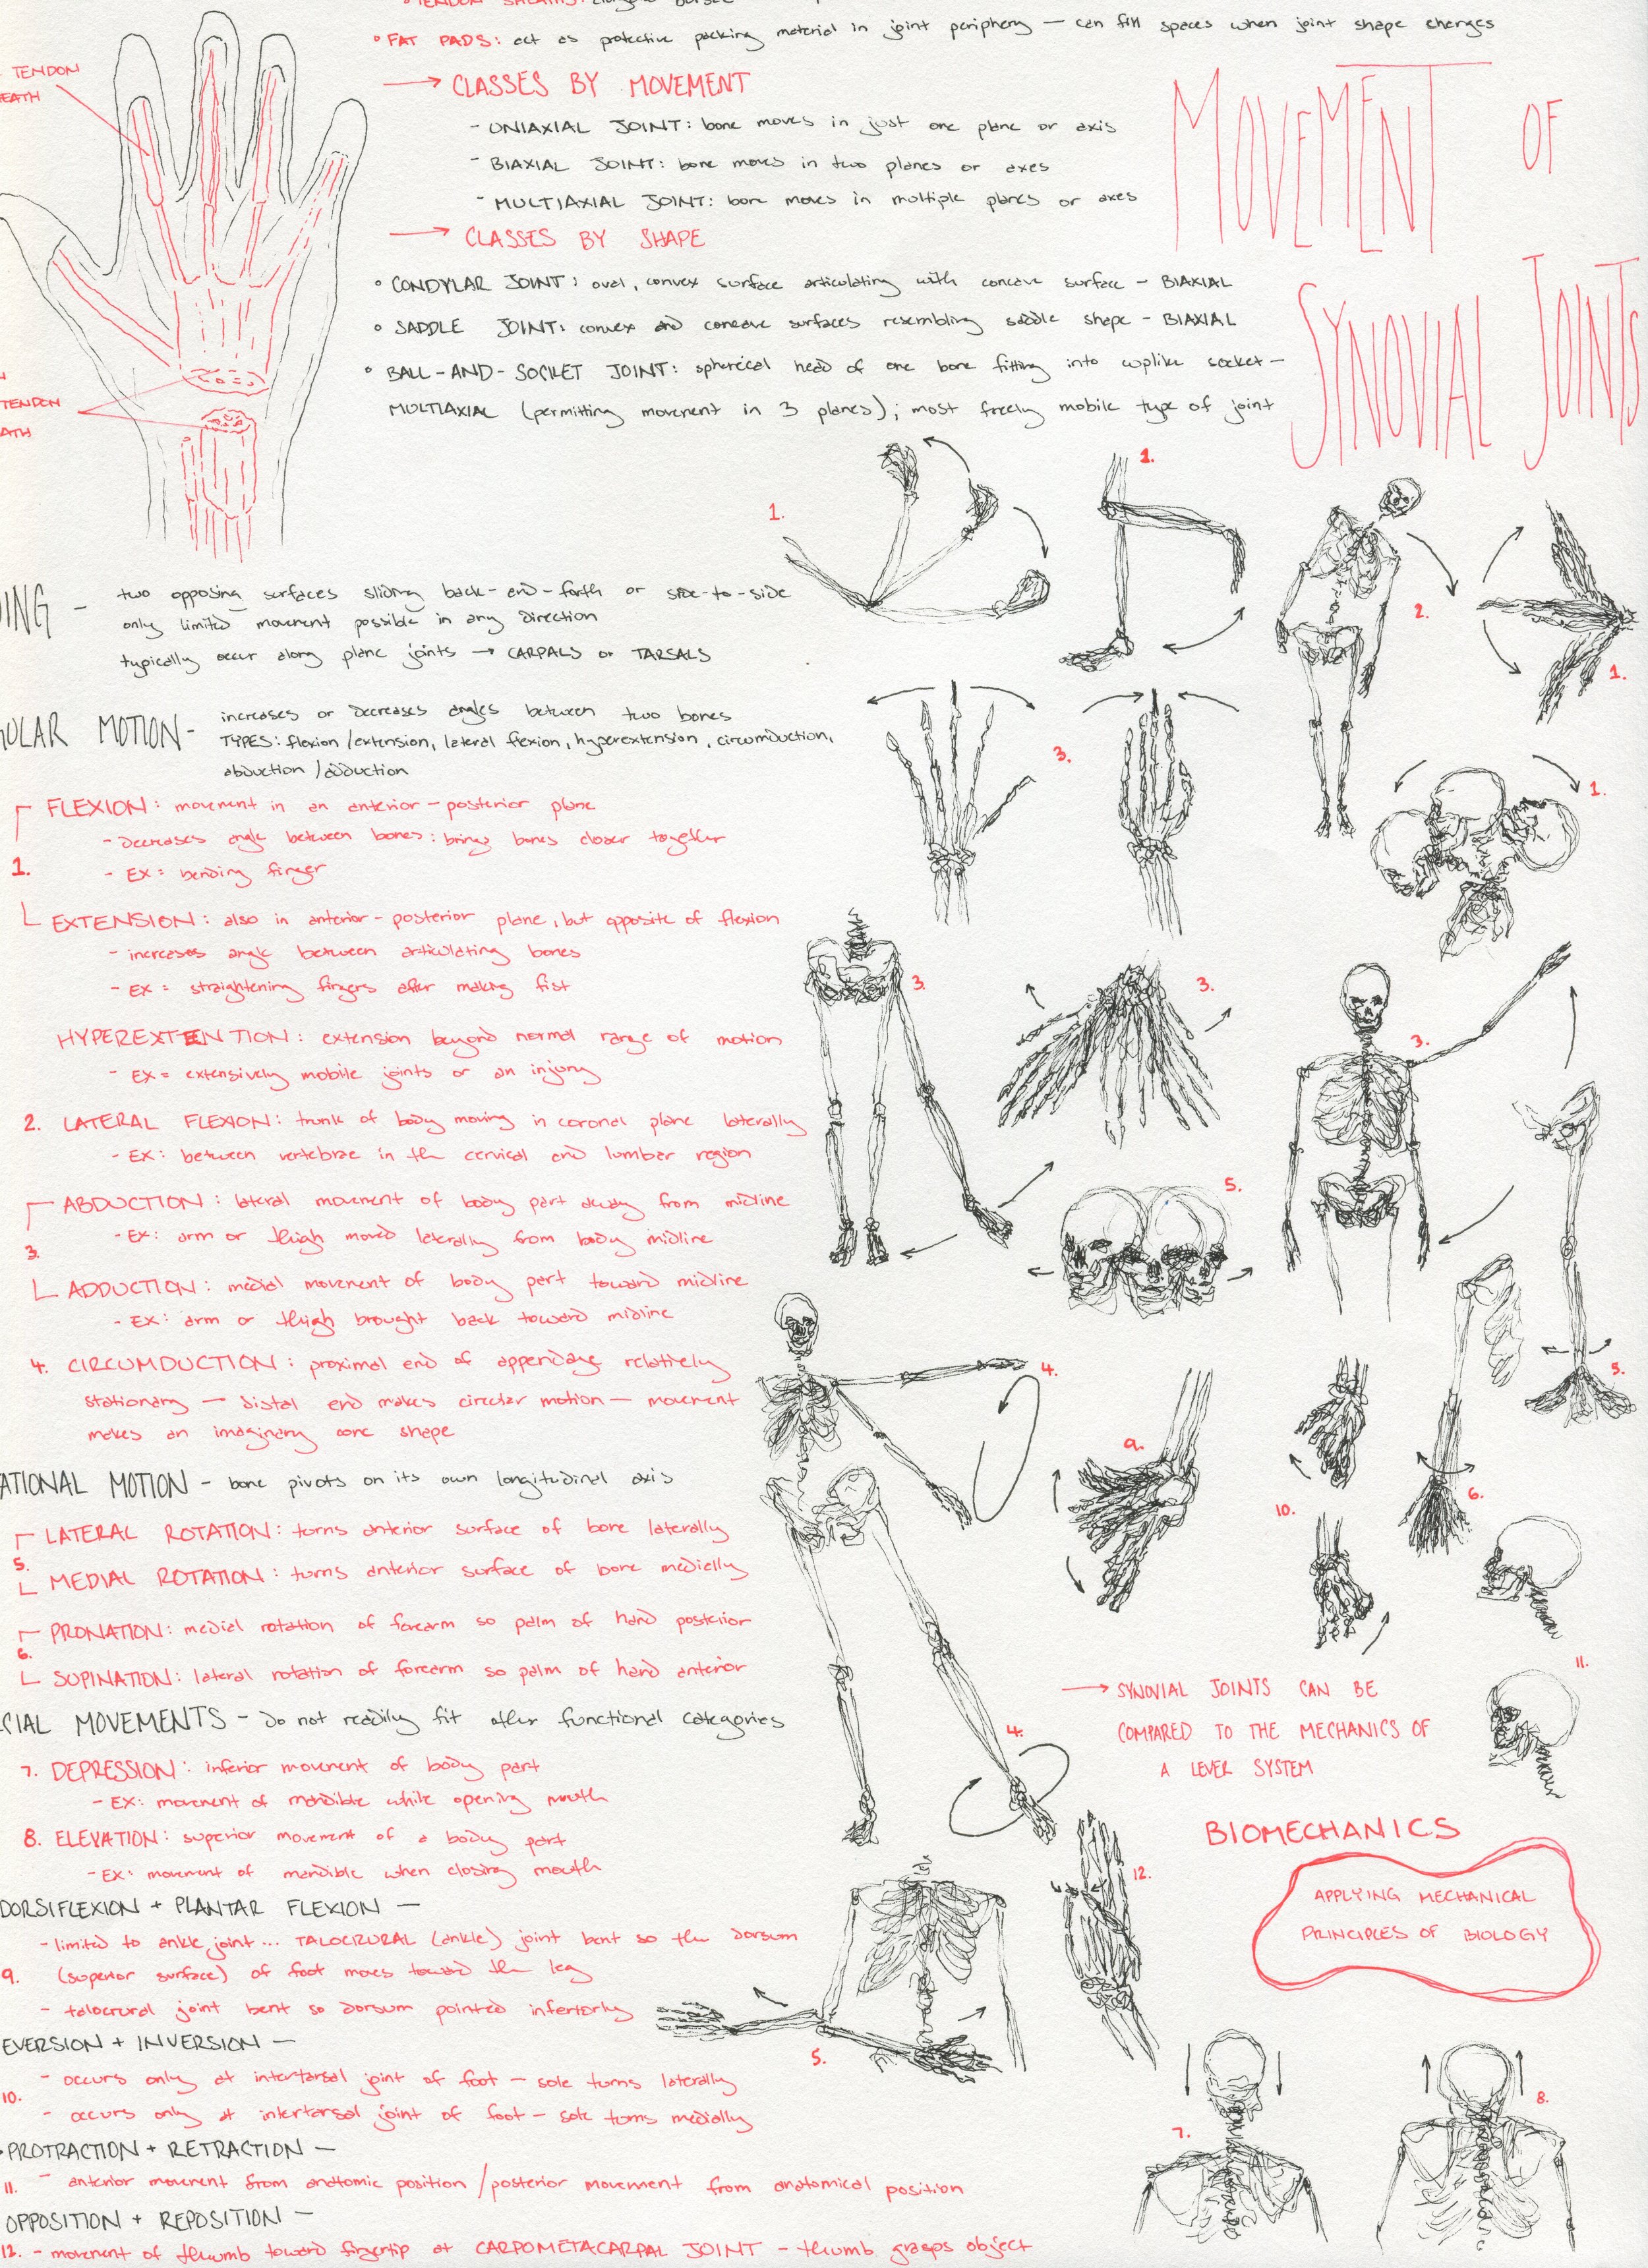 TENDON SHEATHS:
• FAT PADS: act as protective packing material in joint periphery — can fill spaces when joint shape changes
TENDON
EATH
→ CLASSES BY MOVEMENT
- UNIAXIAL JOINT: bone moves in just one plane or axis
- BIAXIAL JOINT: bone moves in two planes or axes
- MULTIAXIAL JOINT: bone moves in multiple planes or axes
→ CLASSES BY SHAPE
• CONDYLAR JOINT: oval, convex surface articulating with concave surface - BIAXIAL
• SADDLE JOINT: convex and concave surfaces resembling saddle shape - BIAXIAL
• BALL-AND-SOCKET JOINT: spherical head of one bone fitting into cuplike socket -
MULTIAXIAL (permitting movement in 3 planes); most freely mobile type of joint
TENDON
ATH
MOVEMENT OF
SYNOVIAL JOINTS
DING - two opposing surfaces sliding back-and-forth or side-to-side
only limited movement possible in any direction
typically occur along plane joints → CARPALS or TARSALS
ULAR MOTION - increases or decreases angles between two bones
TYPES: flexion/extension, lateral flexion, hyperextension, circumduction,
abduction/adduction
FLEXION: movement in an anterior-posterior plane
- decreases angle between bones: brings bones closer together
1.
- EX: bending finger
EXTENSION: also in anterior-posterior plane, but opposite of flexion
- increases angle between articulating bones
- EX: straightening fingers after making fist
HYPEREXTENTION: extension beyond normal range of motion
- EX = extensively mobile joints or an injury
2. LATERAL FLEXION: trunk of body moving in coronal plane laterally
- EX: between vertebrae in the cervical and lumbar region
ABDUCTION: lateral movement of body part away from midline
- EX: arm or thigh moved laterally from body midline
3.
ADDUCTION: medial movement of body part toward midline
- EX: arm or thigh brought back toward midline
4. CIRCUMDUCTION: proximal end of appendage relatively
stationary — distal end makes circular motion — movement
makes an imaginary cone shape
ATIONAL MOTION - bone pivots on its own longitudinal axis
LATERAL ROTATION: turns anterior surface of bone laterally
5.
MEDIAL ROTATION: turns anterior surface of bone medially
PRONATION: medial rotation of forearm so palm of hand posterior
6.
SUPINATION: lateral rotation of forearm so palm of hand anterior
CIAL MOVEMENTS - do not readily fit other functional categories
7. DEPRESSION: inferior movement of body part
- EX: movement of mandible while opening mouth
8. ELEVATION: superior movement of a body part
- EX: movement of mandible when closing mouth
DORSIFLEXION + PLANTAR FLEXION —
- limited to ankle joint... TALOCRURAL (ankle) joint bent so the dorsum
9. (superior surface) of foot moves toward the leg
- talocrural joint bent so dorsum pointed inferiorly
EVERSION + INVERSION —
- occurs only at intertarsal joint of foot - sole turns laterally
10.
- occurs only at intertarsal joint of foot - sole turns medially
• PROTRACTION + RETRACTION —
11. - anterior movement from anatomic position/posterior movement from anatomical position
OPPOSITION + REPOSITION —
12. - movement of thumb toward fingertip at CARPOMETACARPAL JOINT - thumb grasps object
1.
1.
2.
1.
3.
1.
3.
3.
3.
5.
4.
5.
9.
10.
6.
11.
4.
→ SYNOVIAL JOINTS CAN BE
COMPARED TO THE MECHANICS OF
A LEVER SYSTEM
BIOMECHANICS
APPLYING MECHANICAL
PRINCIPLES OF BIOLOGY
12.
5.
7.
8.